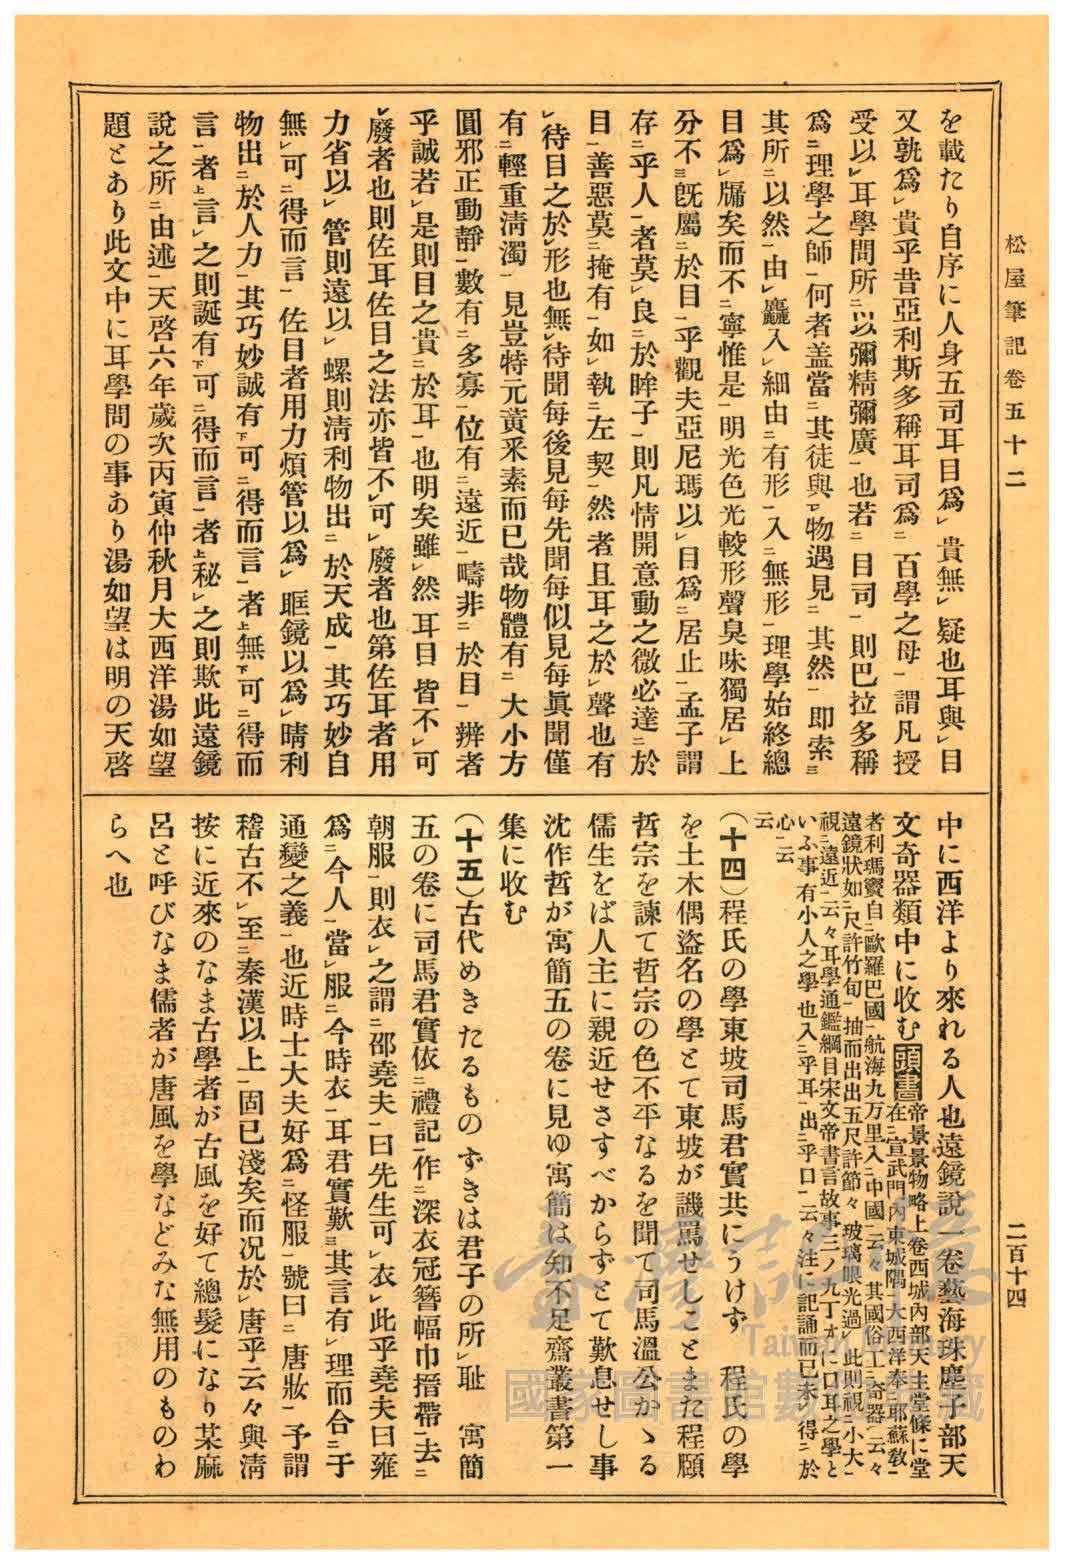 松屋筆記卷五十二
二百十四
を載たり自序に人身五司耳目爲㆑貴無㆑疑也耳與㆑目
又孰爲㆑貴乎昔亞利斯多稱耳司爲㆓百學之母㆒謂凡授
受以㆑耳學問所㆓以彌精彌廣㆒也若㆓目司㆒則巴拉多稱
爲㆓理學之師㆒何者盖當㆘其徒與㆑物遇見㆓其然㆒即索㆗
其所㆓以然㆒由㆑麤入㆑細由㆓有形㆒入㆓無形㆒理學始終總
目爲㆑牖矣而不㆓寧惟是㆒明光色光較形聲臭味獨居㆑上
分不㆔旣屬㆓於目㆒乎觀夫亞尼瑪以㆑目爲㆓居止㆒孟子謂
存㆓乎人㆒者莫㆑良㆓於眸子㆒則凡情開意動之微必達㆓於
目㆒善惡莫㆓掩有㆒如㆑執㆓左契㆒然者且耳之於㆑聲也有
㆑待目之於㆑形也無㆑待聞每後見每先聞每似見每眞聞僅
有㆓輕重淸濁㆒見豈特元黃釆素而已哉物體有㆓大小方
圓邪正動靜㆒數有㆓多寡㆒位有㆓遠近㆒疇非㆓於目㆒辨者
乎誠若㆑是則目之貴㆓於耳㆒也明矣雖㆑然耳目皆不㆑可
㆑廢者也則佐耳佐目之法亦皆不㆑可㆑廢者也第佐耳者用
力省以㆑管則遠以㆑螺則淸利物出㆓於天成㆒其巧妙自
無㆑可㆓得而言㆒佐目者用力煩管以爲㆑眶鏡以爲㆑晴利
物出㆓於人力㆒其巧妙誠有㆘可㆓得而言㆒者㆖無㆘可㆓得而
言㆒者㆖言㆑之則誕有㆘可㆓得而言㆒者㆖秘㆑之則欺此遠鏡
說之所㆓由述㆒天啓六年歲次丙寅仲秋月大西洋湯如望
題とあり此文中に耳學問の事あり湯如望は明の天啓
中に西洋より來れる人也遠鏡說一卷藝海珠塵子部天
文奇器類中に收む頭書帝景景物略上卷西城內部天主堂條に堂
在㆓宣武門內東城隅㆒大西洋奉㆓耶蘇敎㆒
者利瑪竇自㆓歐羅巴國㆒航海九万里入㆓中國㆒云々其國俗工㆓奇器㆒云々
遠鏡狀如㆓尺許竹旬㆒抽而出出五尺許節々玻璃眼光過㆑此則視㆓小大㆒
視㆓遠近㆒云々耳學通鑑綱目宋文帝書言故事三ノ九丁オに口耳之學と
いふ事有小人之學也入㆓乎耳㆒出㆓乎口㆒云々注に記誦而已未㆑得㆓於
心㆒云
云
（十四）程氏の學東坡司馬君實共にうけず　程氏の學
を土木偶盜名の學とて東坡が譏罵せしことまた程頤
哲宗を諫て哲宗の色不平なるを聞て司馬溫公かゝる
儒生をば人主に親近せさすべからずとて歎息せし事
沈作哲が寓簡五の卷に見ゆ寓簡は知不足齋叢書第一
集に收む
（十五）古代めきたるものずきは君子の所㆑耻　寓簡
五の卷に司馬君實依㆓禮記㆒作㆓深衣冠簪幅巾搢帶㆒去㆓
朝服㆒則衣㆑之謂㆓邵堯夫㆒曰先生可㆑衣㆑此乎堯夫曰雍
爲㆓今人㆒當㆑服㆓今時衣㆒耳君實歎㆔其言有㆑理而合㆓于
通變之義㆒也近時士大夫好爲㆓怪服㆒號曰㆓唐妝㆒予謂
稽古不㆑至㆓秦漢以上㆒固已淺矣而况於㆑唐乎云々與淸
按に近來のなま古學者が古風を好て總髮になり某麻
呂と呼びなま儒者が唐風を學などみな無用のものわ
らへ也
臺灣記憶
Taiwan Memory
國家圖書館數位典藏